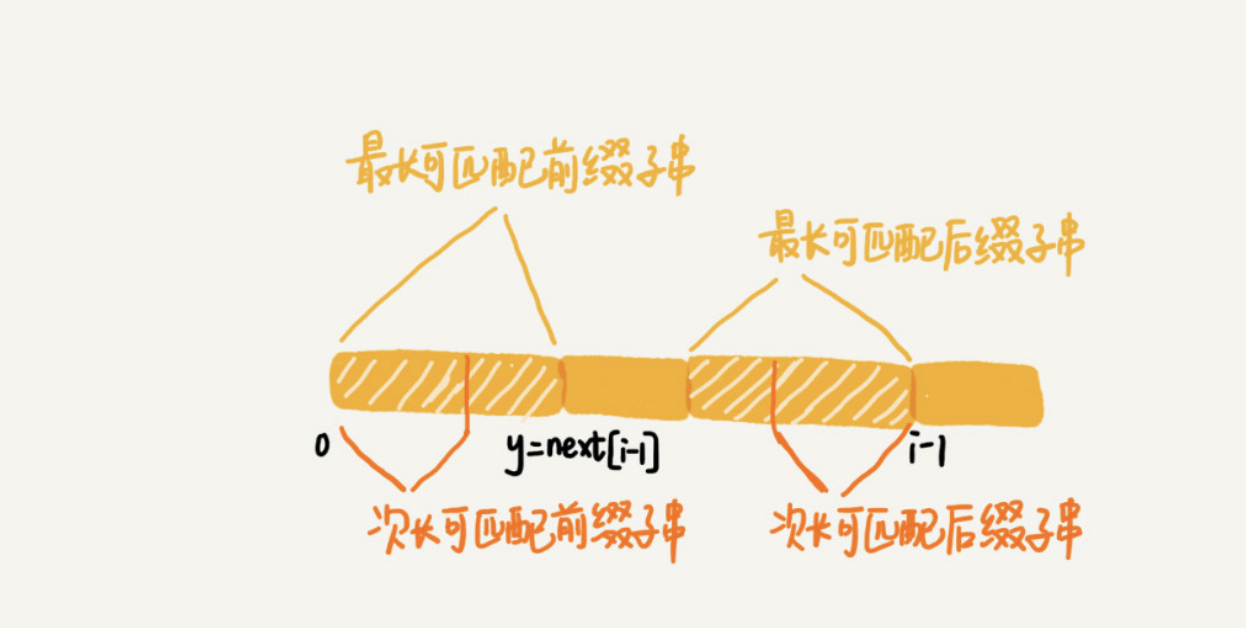 最长可匹配前缀子串
最长可匹配后缀子串
0
y=next[i-1]
i-1
次长可匹配前缀子串
次长可匹配后缀子串